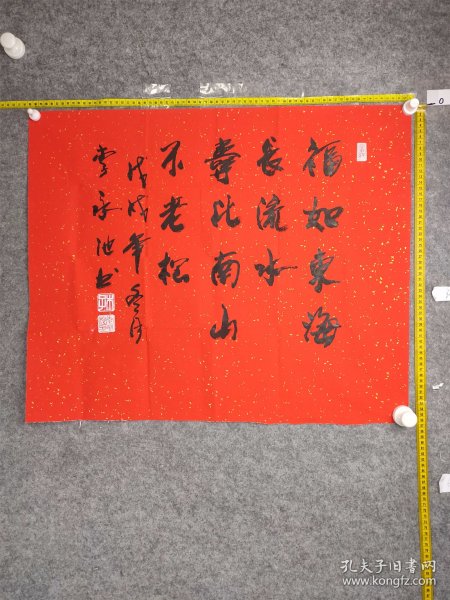 福如東海
長流水
壽比南山
不老松
戊戌年冬月
李永池书
孔夫子旧书网
www.kongfz.com
0